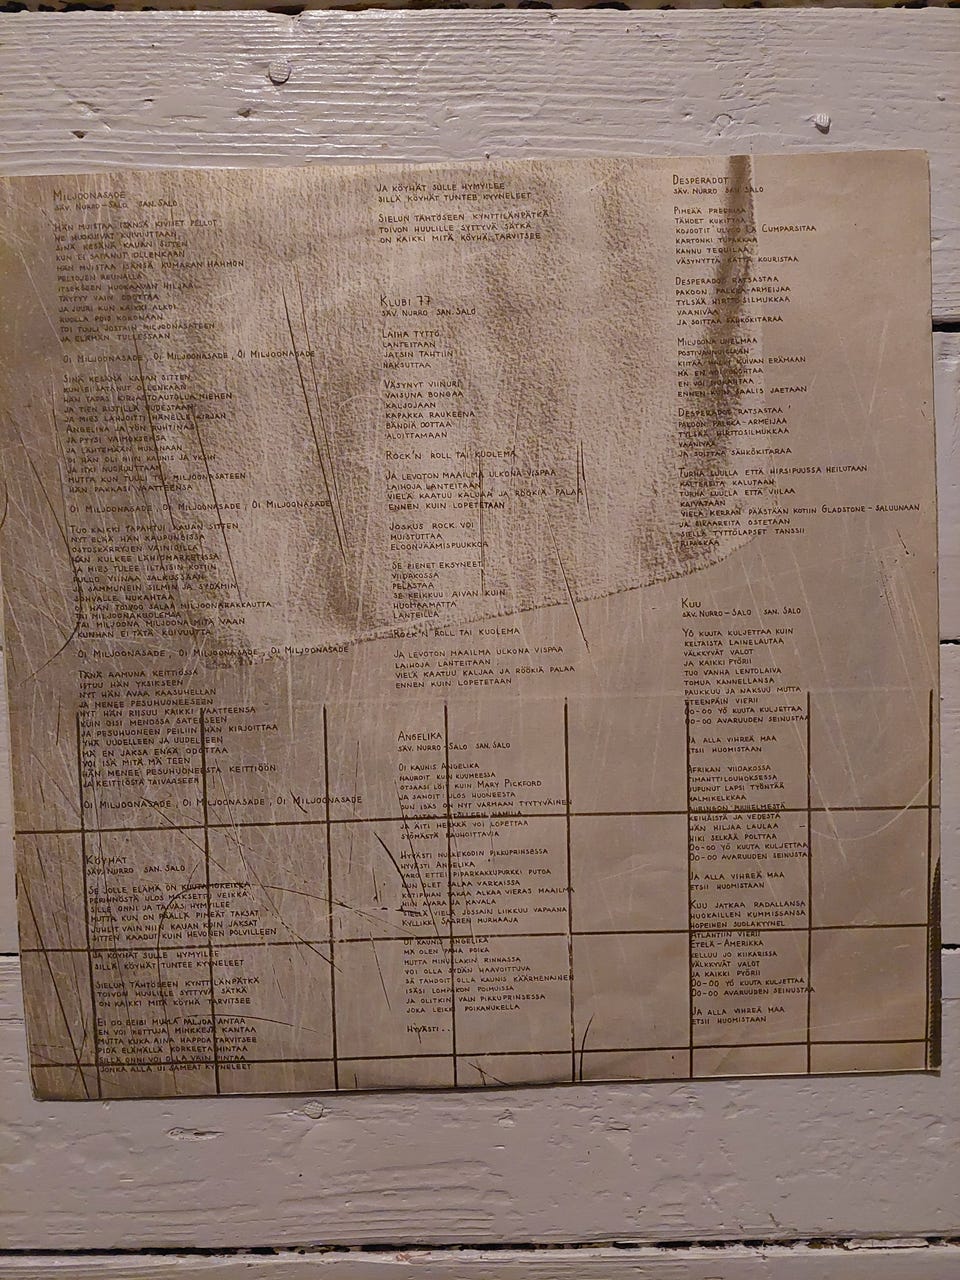 Miljoonasade
säv. Nurro-Salo san. Salo
Hän muistaa isänsä kiviset pellot
ne huokuivat kuivuuttaan
sinä kesänä kauan sitten
kun ei satanut ollenkaan
Hän muistaa isänsä kumaran hahmon
peltojen reunalla
itsekseen huokaavan hiljaa
täytyy vain odottaa
ja juuri kun kaikki alkoi
kuolla pois kokonaan
toi tuuli jostain miljoonasateen
ja elämän tullessaan
Oi Miljoonasade, Oi Miljoonasade, Oi Miljoonasade
Sinä kesänä kauan sitten
kun ei satanut ollenkaan
hän tapas kirjastoautolla miehen
ja tien ristillä uudestaan
ja mies lahjoitti hänelle kirjan
Angelika ja yön ruhtinas
ja pyysi vaimoksensa
ja lähtemään mukanaan
Oi hän oli niin kaunis ja yksin
ja itki nuoruuttaan
mutta kun tuuli toi miljoonasateen
hän pakkasi vaatteensa
Oi Miljoonasade, Oi Miljoonasade, Oi Miljoonasade
Tuo kaikki tapahtui kauan sitten
nyt elää hän kaupungissa
ostoskärryjen vainioilla
hän kulkee lähimarketissa
ja mies tulee iltaisin kotiin
pullo viinaa salkussaan
ja sammunein silmin ja sydämin
sohvalle nukahtaa
Oi hän toivoo salaa miljoonarakkautta
tai miljoonakuolemaa
tai miljoona miljoonaa mitä vaan
kunhan ei tätä kuivuutta
Oi Miljoonasade, Oi Miljoonasade, Oi Miljoonasade
Tänä aamuna keittiössä
istuu hän yksikseen
nyt hän avaa kaasuhellan
ja menee pesuhuoneeseen
nyt hän riisuu kaikki vaatteensa
kuin oisi menossa sateeseen
ja pesuhuoneen peiliin hän kirjoittaa
yhä uudelleen ja uudelleen
mä en jaksa enää odottaa
voi isä mitä mä teen
hän menee pesuhuoneesta keittiöön
ja keittiöstä taivaaseen
Oi Miljoonasade, Oi Miljoonasade, Oi Miljoonasade
Köyhät
säv. Nurro-Salo san. Salo
Se jolle elämä on
perinnöstä ulos maksettu veikka
sille onni ja taivas hymyilee
mutta kun on päällä pimeät taksat
juhlit vain niin kauan kuin jaksat
sitten kaadut kuin hevonen polvilleen
ja köyhät sulle hymyilee
sillä köyhät tuntee kyyneleet
Sielun tähtöseen kynttilänpätkä
toivon huulille syttyvä sätkä
on kaikki mitä köyhä tarvitsee
Ei oo beibi mulla paljoa antaa
en voi kettuja minkkejä kantaa
mutta kuka aina happoa tarvitsee
pidä elämällä korkeeta hintaa
sillä onni voi olla vain pintaa
jonka alla ui sameat kyyneleet
ja köyhät sulle hymyilee
sillä köyhät tuntee kyyneleet
Sielun tähtöseen kynttilänpätkä
toivon huulille syttyvä sätkä
on kaikki mitä köyhä tarvitsee
Klubi 77
säv. Nurro san. Salo
Laiha tyttö
lanteitaan
jatsin tahtiin
naksuttaa
Väsynyt viinuri
vaisuna bongaa
kaljojaan
kapakka raukeena
bändiä oottaa
aloittamaan
Rock'n roll tai kuolema
Ja levoton maailma ulkona vispaa
laihoja lanteitaan
vielä kaatuu kaljaa ja röökiä palaa
ennen kuin lopetetaan
Joskus rock voi
muistuttaa
eloonjäämispuukkoa
Se pienet eksyneet
viidakossa
pelastaa
se keikkuu aivan kuin
huomaamatta
lanteilla
Rock'n roll tai kuolema
Ja levoton maailma ulkona vispaa
laihoja lanteitaan
vielä kaatuu kaljaa ja röökiä palaa
ennen kuin lopetetaan
Angelika
säv. Nurro-Salo san. Salo
Oi kaunis Angelika
nauroit kuin kuumeessa
otsaasi löit kuin Mary Pickford
ja sanoit ulos huoneesta
sun isäs on nyt varmaan tyytyväinen
ja ostaa tytölleen
ja äiti herkkä voi lopettaa
syömästä rauhoittavia
Hyvästi nukkekodin pikkuprinsessa
hyvästi Angelika
varo ettei piparkakkupurkki putoa
kun olet salaa varkaissa
kotipihan takaa alkaa vieras maailma
hyvin avara ja kavala
siellä vielä jossain liikkuu vapaana
Kyllikki Saaren murhaaja
Oi kaunis Angelika
mä olen paha poika
mutta minullakin rinnassa
voi olla sydän haavoittuva
sä tahdoit olla kaunis käärmenainen
isäsi lompakon poimuissa
ja olitkin vain pikkuprinsessa
joka leikki poikanukella
Hyvästi...
Desperadot
säv. Nurro san Salo
Pimeää preeriaa
tähdet kukittaa
kojootit ulvoo La Cumparsitaa
kartonki tupakkaa
kannu tequilaa
väsynyttä kättä kouristaa
Desperadot ratsastaa
pakoon palkka-armeijaa
tylsää hirttosilmukkaa
vaanivaa
ja soittaa sähkökitaraa
Miljoona unelmaa
postivaunuissaan
kiitää halki kuivan erämaan
mä en voi odottaa
en voi nukahtaa
ennen kuin saalis jaetaan
Desperadot ratsastaa
pakoon palkka-armeijaa
tylsää hirttosilmukkaa
vaanivaa
ja soittaa sähkökitaraa
Turha luulla että hirsipuussa heilutaan
kaltereita kalutaan
turha luulla että viilaa
kaivataan
vielä kerran päästään kotiin Gladstone-saluunaan
ja sikaareita ostetaan
siellä tyttölapset tanssii
ripaskaa
Kuu
säv. Nurro-Salo san. Salo
Yö kuuta kuljettaa kuin
keltaista lainelautaa
välkkyvät valot
ja kaikki pyörii
tuo vanha lentolaiva
tomua kannellansa
paukkuu ja naksuu mutta
eteenpäin vierii
Oo-oo yö kuuta kuljettaa
Oo-oo avaruuden seinustaa
Ja alla vihreä maa
etsii huomistaan
Afrikan viidakossa
timanttilouhoksessa
uupunut lapsi työntää
malmikelkkaa
auringon puuhelmestä
keihäistä ja vedestä
hän hiljaa laulaa
hiki selkää polttaa
Oo-oo yö kuuta kuljettaa
Oo-oo avaruuden seinustaa
Ja alla vihreä maa
etsii huomistaan
Kuu jatkaa radallansa
huokaillen kummissansa
hopeinen suolakyynel
Atlantiin vierii
Etelä-Amerikka
kelluu jo kiikarissa
välkkyvät valot
ja kaikki pyörii
Oo-oo yö kuuta kuljettaa
Oo-oo avaruuden seinustaa
Ja alla vihreä maa
etsii huomistaan